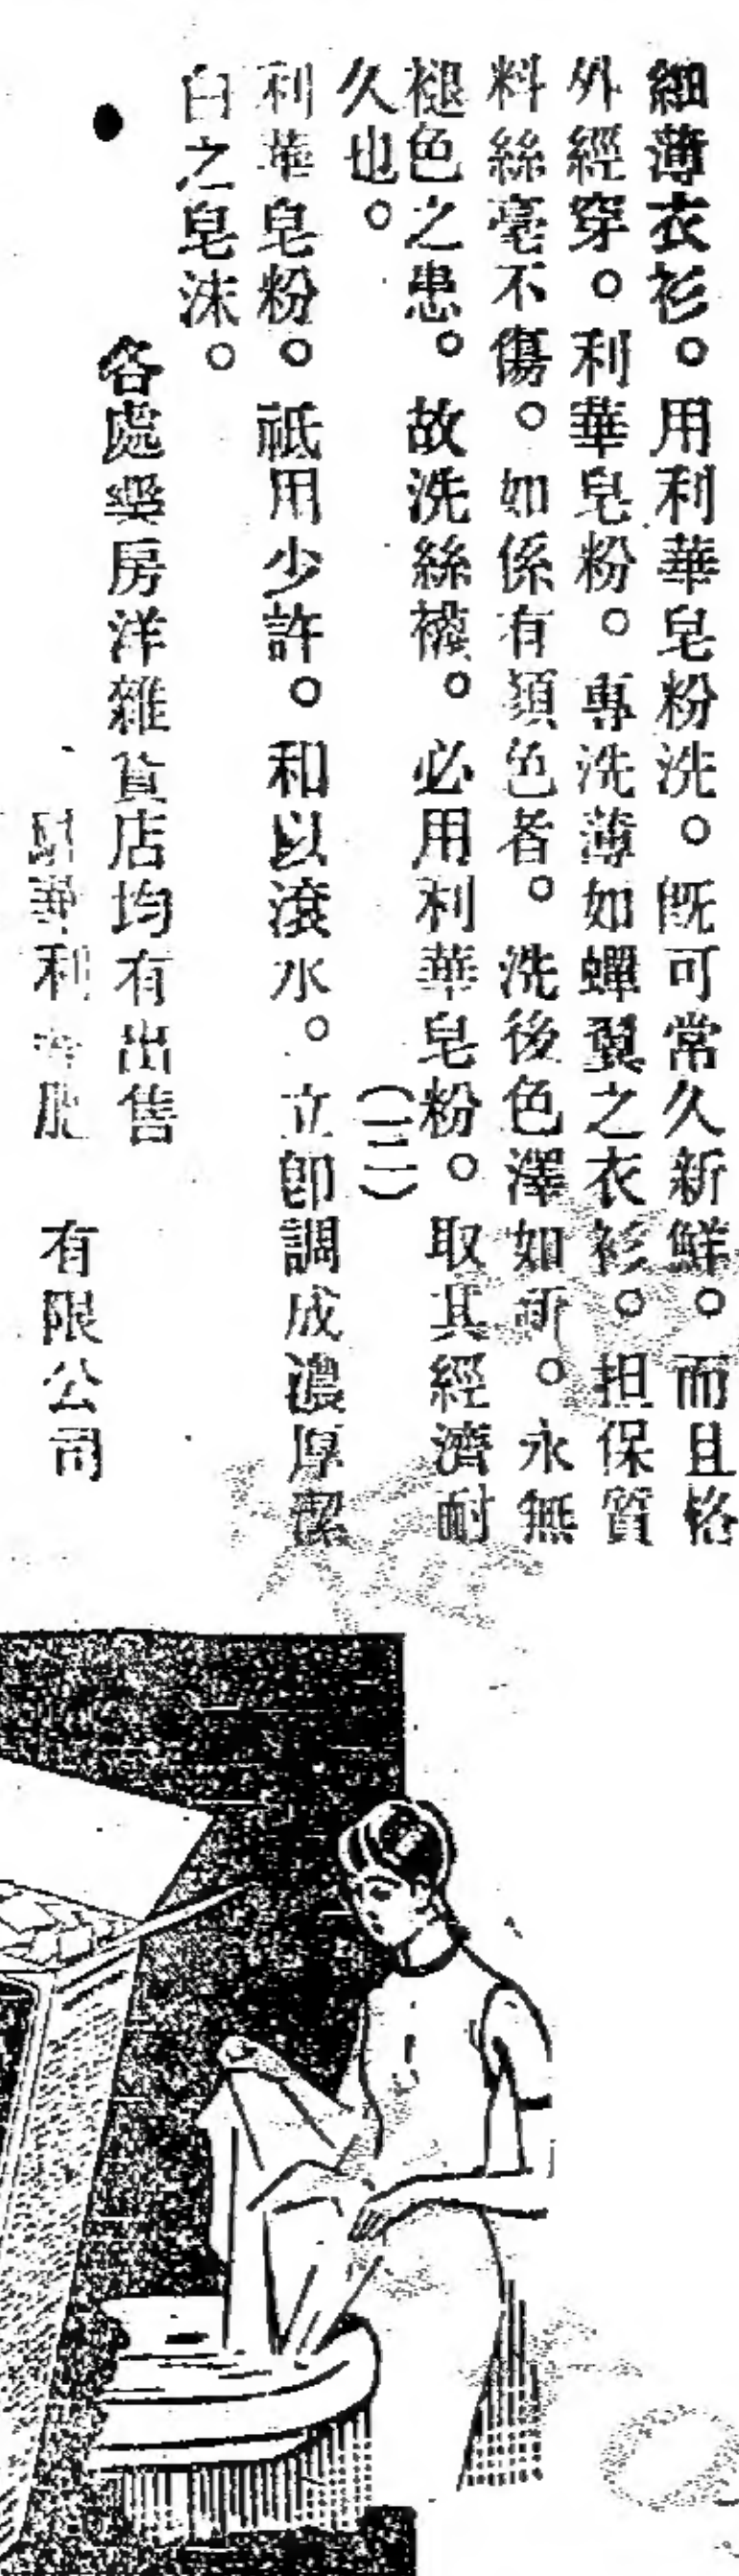 細薄衣衫。用利華皂粉洗。旣可常久新鮮。而且格
外經穿。利華皂粉。專洗薄如蟬翼之衣衫。担保質
料絲毫不傷。如係有顏色者。洗後色澤如新。永無
褪色之患。故洗絲襪。必用利華皂粉。取其經濟耐
久也。
(二三)
利華皂粉。祗用少許。和以滾水。立卽調成濃厚潔
白之皂沫。
各處藥房洋雜貨店均有出售
利 有限公司